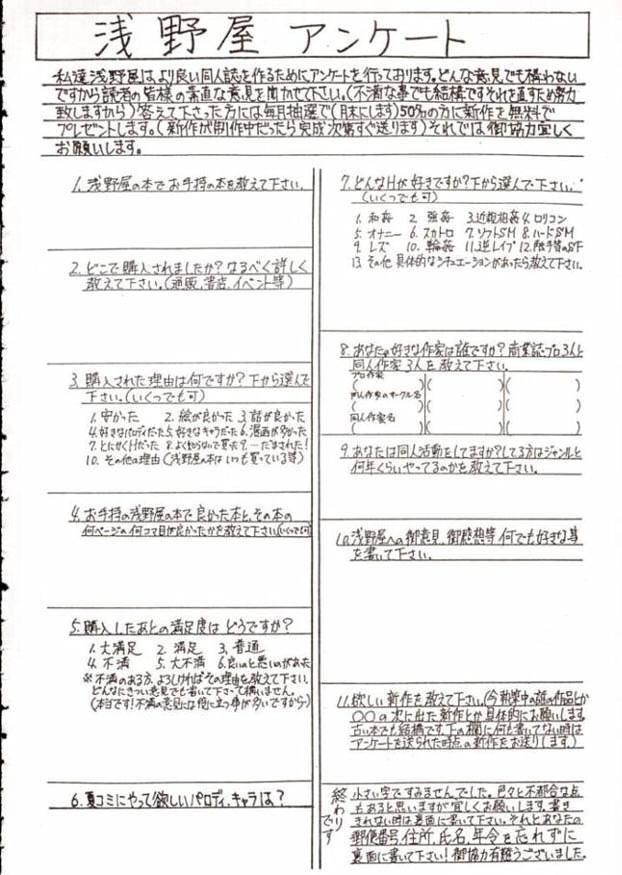 浅野屋 アンケート
私達浅野屋は、より良い同人誌を作るためにアンケートを行っております。どんな意見でも構わない
ですから読者の皆様の素直な意見を聞かせて下さい。(不満な事でも結構ですそれを直すため努力
致しますから)答えて下さった方には毎月抽選で(月末にします)50名の方に新作を無料で
プレゼントします。(新作が制作中だったら完成次第すぐ送ります)それでは御協力宜しく
お願いします。
1.浅野屋の本でお手持の本を教えて下さい。
2.どこで購入されましたか?なるべく詳しく
教えて下さい。(通販、書店、イベント等)
3.購入された理由は何ですか?下から選んで
下さい。(いくつでも可)
1.安かった 2.絵が良かった 3.話が良かった
4.好きなパロディだった 5.好きなキャラだった 6.漫画が多かった
7.とにかくHだった 8.よく分らないで買った 9.一だまされた!
10.その他の理由(浅野屋の本はいつも買っている等)
4.お手持の浅野屋の本で良かった本と、その本の
何ページの何コマ目が良かったかを教えて下さい(いくつでも可)
5.購入したあとの満足度はどうですか?
1.大満足 2.満足 3.普通
4.不満 5.大不満 6.良いのと悪いのがあった
※不満のある方、よろしければその理由を教えて下さい。
どんなにきつい意見でも書いて下さって構いません。
(本当です!不満の意見には役に立つ事が多いですから)
6.夏コミにやって欲しいパロディ、キャラは?
7.どんなHが好きですか?下から選んで下さい。
(いくつでも可)
1.和姦 2.強姦 3.近親相姦 4.ロリコン
5.オナニー 6.スカトロ 7.ソフトSM 8.ハードSM
9.レズ 10.輪姦 11.逆レイプ 12.触手等のSF
13.その他 具体的なシチュエーションがあったら教えて下さい。
8.あなたの好きな作家は誰ですか?商業誌・プロ3人と
同人作家3人を教えて下さい。
プロ作家
( )( )( )
同人作家のサークル名
( )( )( )
同人作家名
( )( )( )
9.あなたは同人活動をしてますか?してる方はジャンルと
何年くらいやってるのかを教えて下さい。
10.浅野屋への御意見、御感想等何でも好きな事
を書いて下さい。
11.欲しい新作を教えて下さい。(今、編集中の誰の作品とか
○○の次に出た新作とか具体的にお願いします。
古い本でも結構です。下の欄に何も書いてない時は
アンケートを送られた時点の新作をお送りします。)
終わりです
小さい字ですみませんでした。色々と不都合な点
もあると思いますが宜しくお願いします。書き
きれない時は裏面に書いて下さい。それとあなたの
郵便番号、住所、氏名、年令を忘れずに
裏面に書いて下さい!御協力有難うございました。